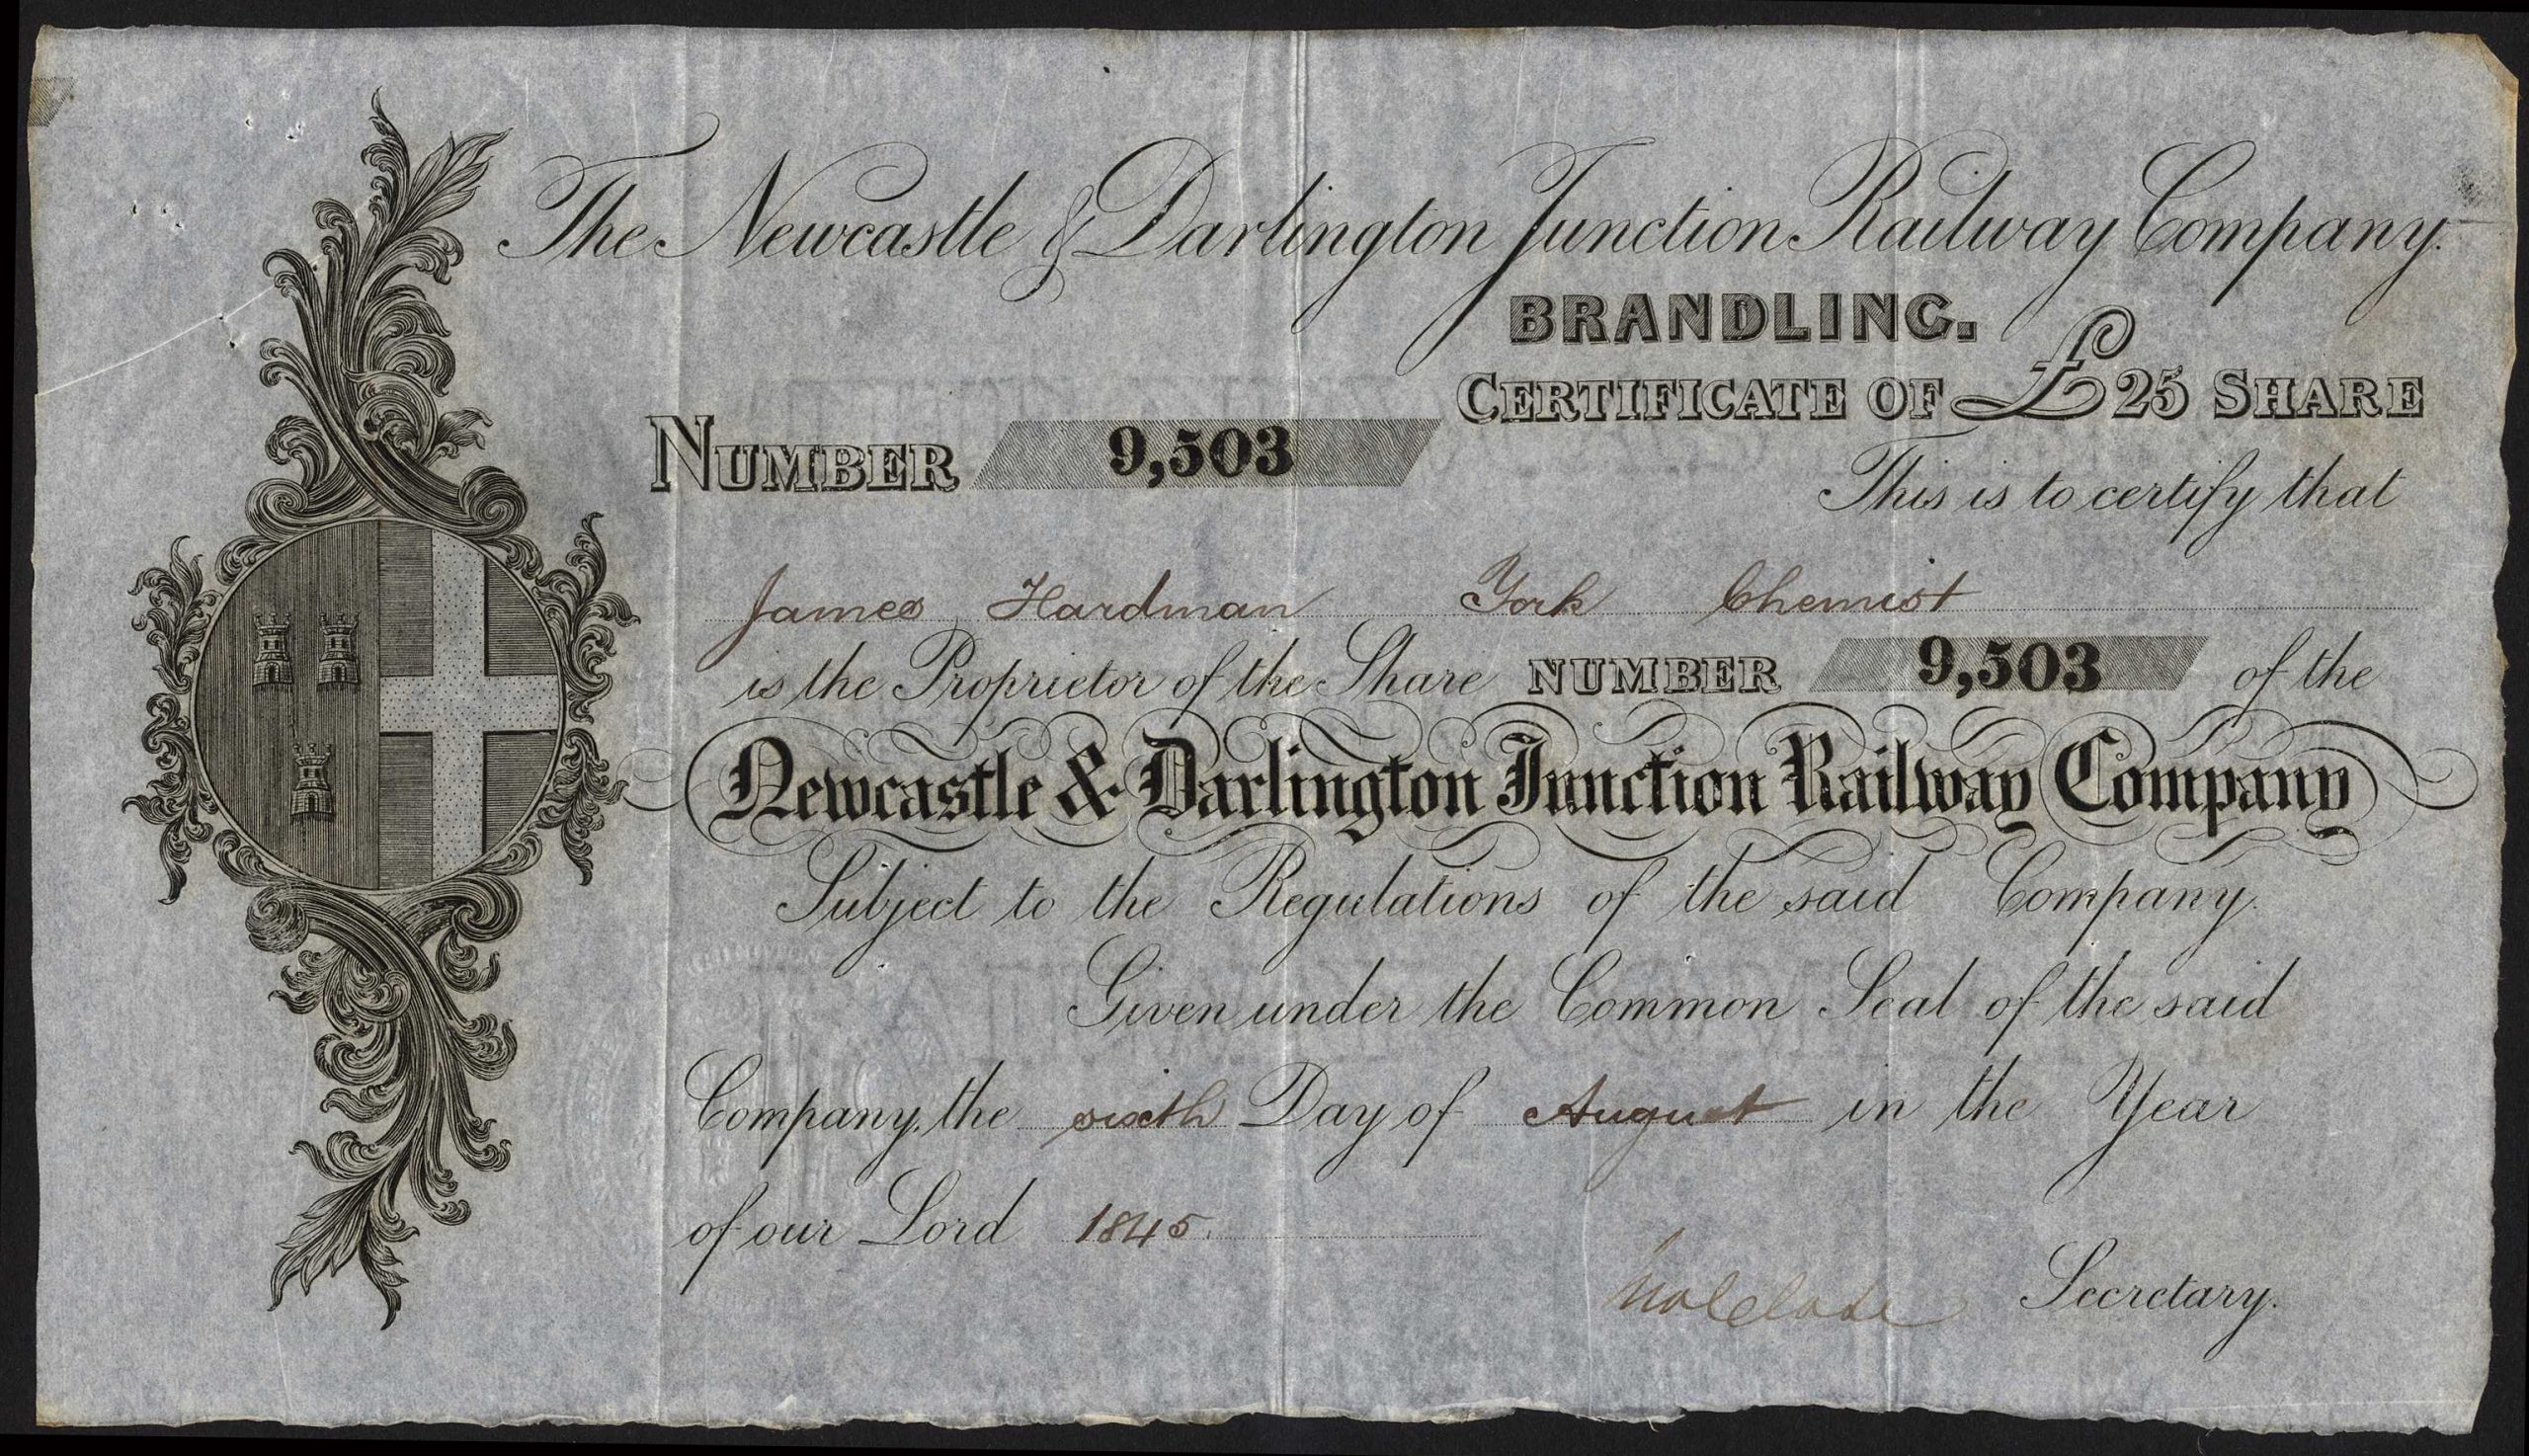 The Newcastle & Darlington Junction Railway Company.
BRANDLING.
CERTIFICATE OF £25 SHARE
NUMBER 9,503
This is to certify that
James Hardman York Chemist
is the Proprietor of the Share NUMBER 9,503 of the
Newcastle & Darlington Junction Railway Company
Subject to the Regulations of the said Company.
Given under the Common Seal of the said
Company, the sixth Day of August in the Year
of our Lord 1845.
Secretary.